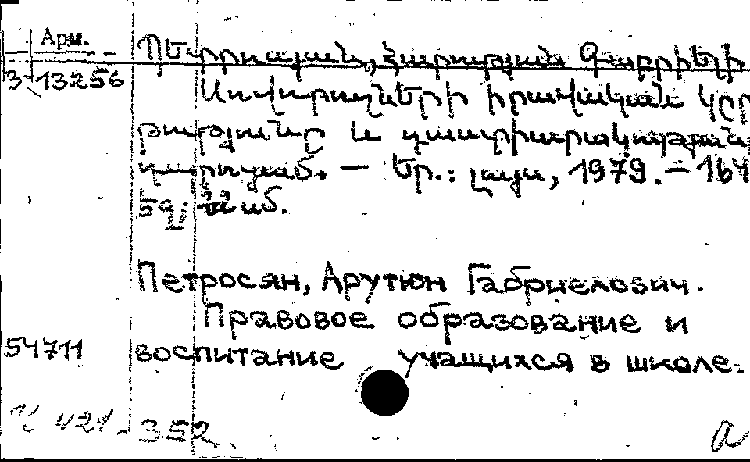 Арм.
Պետրոսյան, Հարություն Գաբրիելի
3-13256
Սովորողների իրավական կրր
թությունը և դաստիարակությունը
դպրոցում. — Եր.: Լույս, 1979. — 164
59;
Петросян, Арутюн Габриелович.
Правовое образование и
54711
воспитание учащихся в школе.
352
a